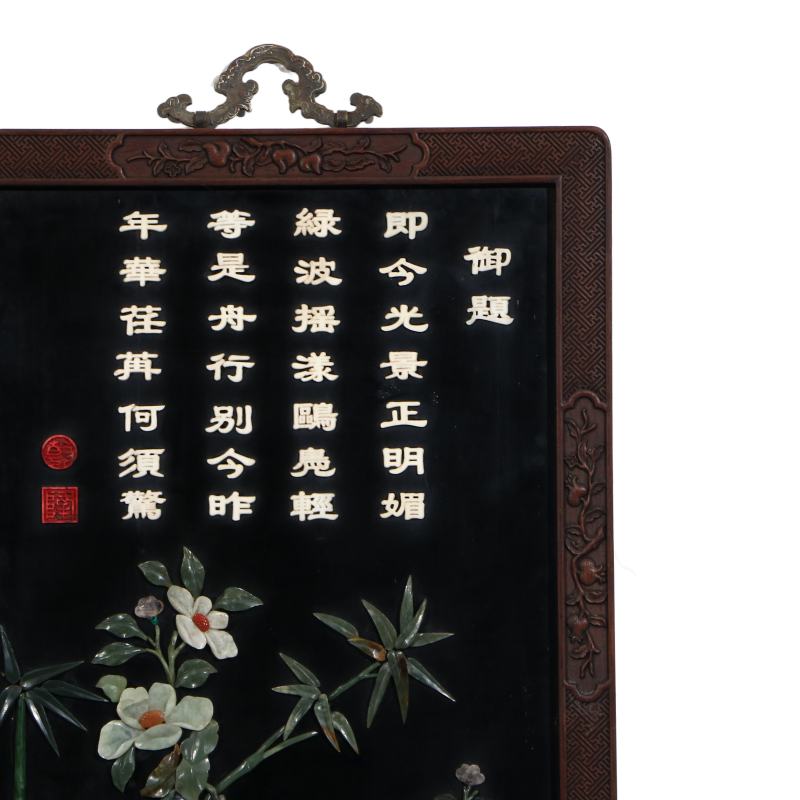 御題
即今光景正明媚
緑波摇漾鷗鳧輕
等是舟行别今昨
年華荏苒何須驚